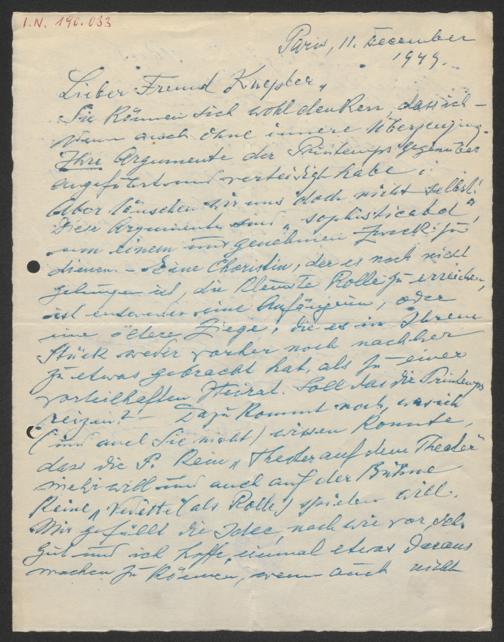 I.N. 190.033
Paris, 11. December
1949.
Lieber Freund Knepler,
Sie können sich wohl denken, dass ich –
wenn auch ohne innere Überzeugung –
Ihre Argumente der Printemps gegenüber
angeführt und verteidigt habe.
Aber täuschen wir uns doch nicht selbst!
Diese Argumente sind „sophisticated“
um einem uns genehmen Zweck zu
dienen. – Eine Choristin, der es noch nicht
gelungen ist, die kleinste Rolle zu erreichen,
ist entweder eine Anfängerin, oder
eine Ziege, die es in Ihrem
Stück weder vorher noch nachher
zu etwas gebracht hat, als zu einer
vorteilhaften Heirat. Soll das die Printemps
reizen? – Dazu kommt noch, was ich
(und auch Sie nicht) wissen konnte,
dass die P. kein „Theater auf dem Theater“
mehr will und auch auf der Bühne
keine „ (als Rolle) spielen will.
Mir gefällt die Idee nach wie vor sehr
gut und ich hoffe, einmal etwas daraus
machen zu können, wenn auch nicht